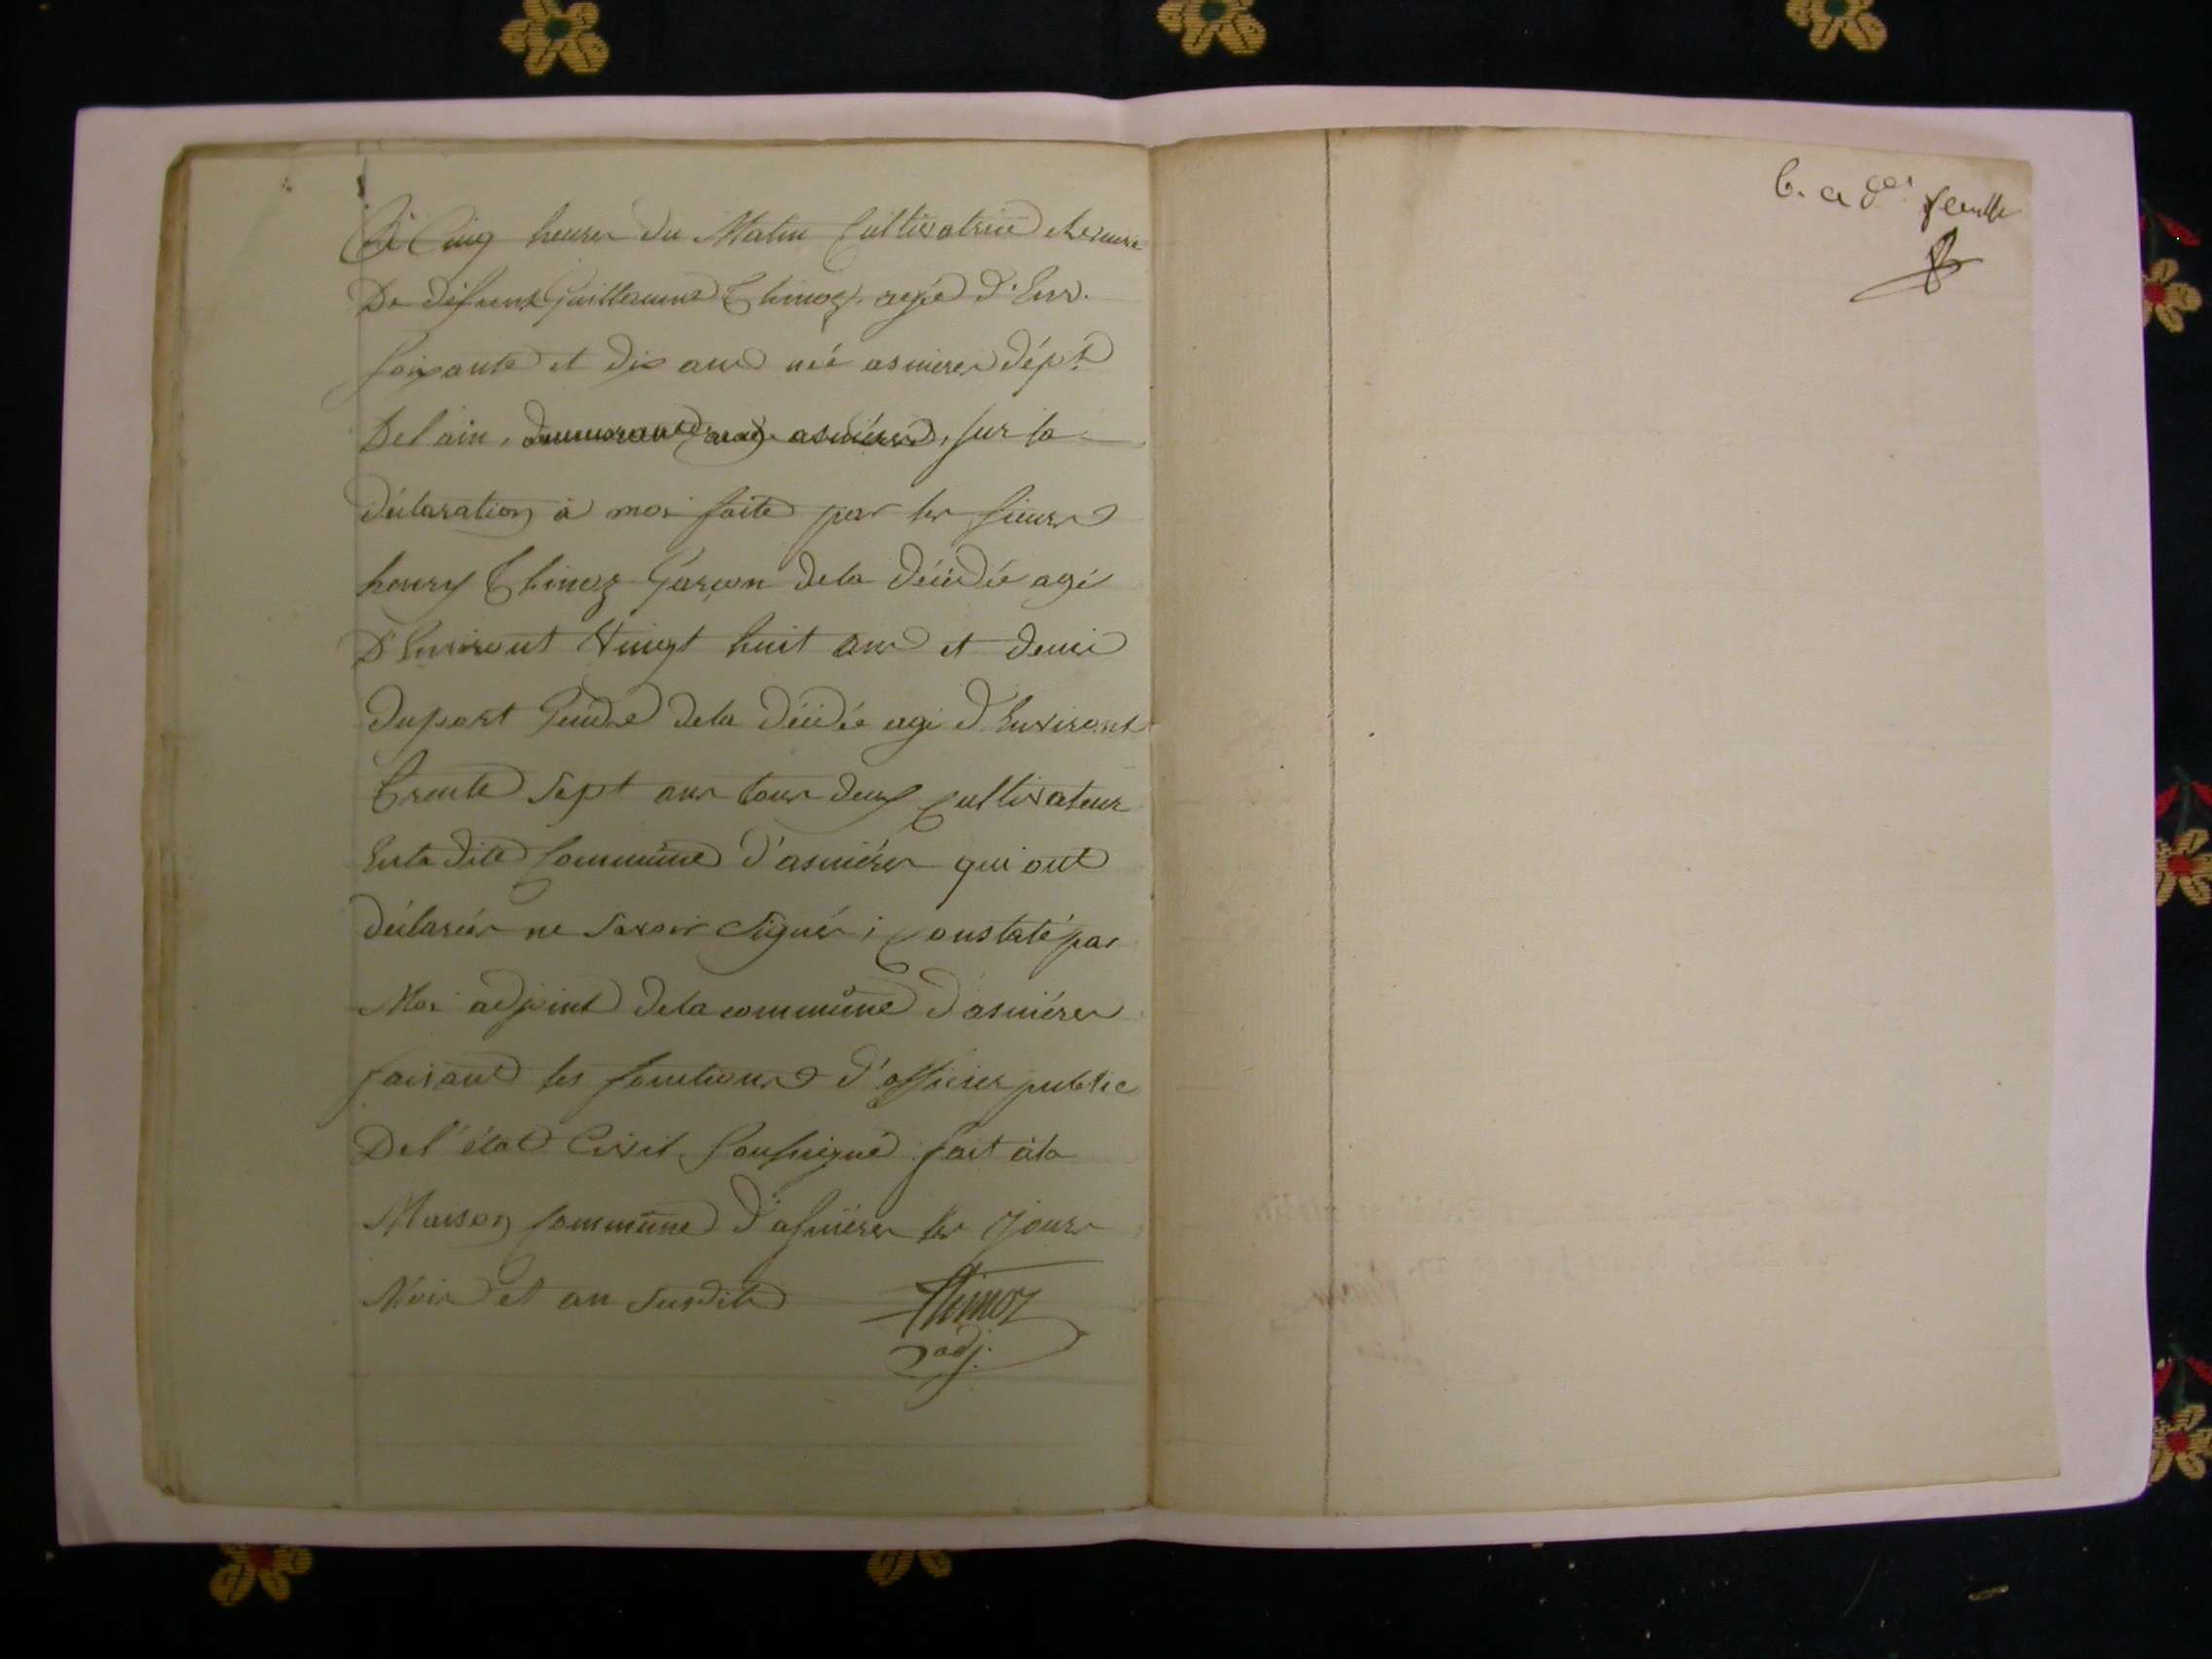 à Cinq heures du Matin Cultivatrice et veuve
De défunt Guillaume Thinoz agée d'Env.
soixante et dix ans née asnieres dépt
Del ain, demeurant asnières, sur la
déclaration à moi faite par les sieurs
henry Thinoz Garçon dela décédée agé
D'Environt Vingt huit ans et denis
duport Gendre dela décédée agé d'Environt
Trente sept ans tous deux Cultivateur
Enla dite Commune d'asniéres qui ont
déclarér ne savoir signér ; Constaté par
Moi adjoint dela commune d'asniéres
faisant les fonctions d'officier public
Del'état Civil soussigné. fait àla
Maison Commune d'asniéres les Jours
Mois et an susdits Thinoz
adj.
6. et der feuille